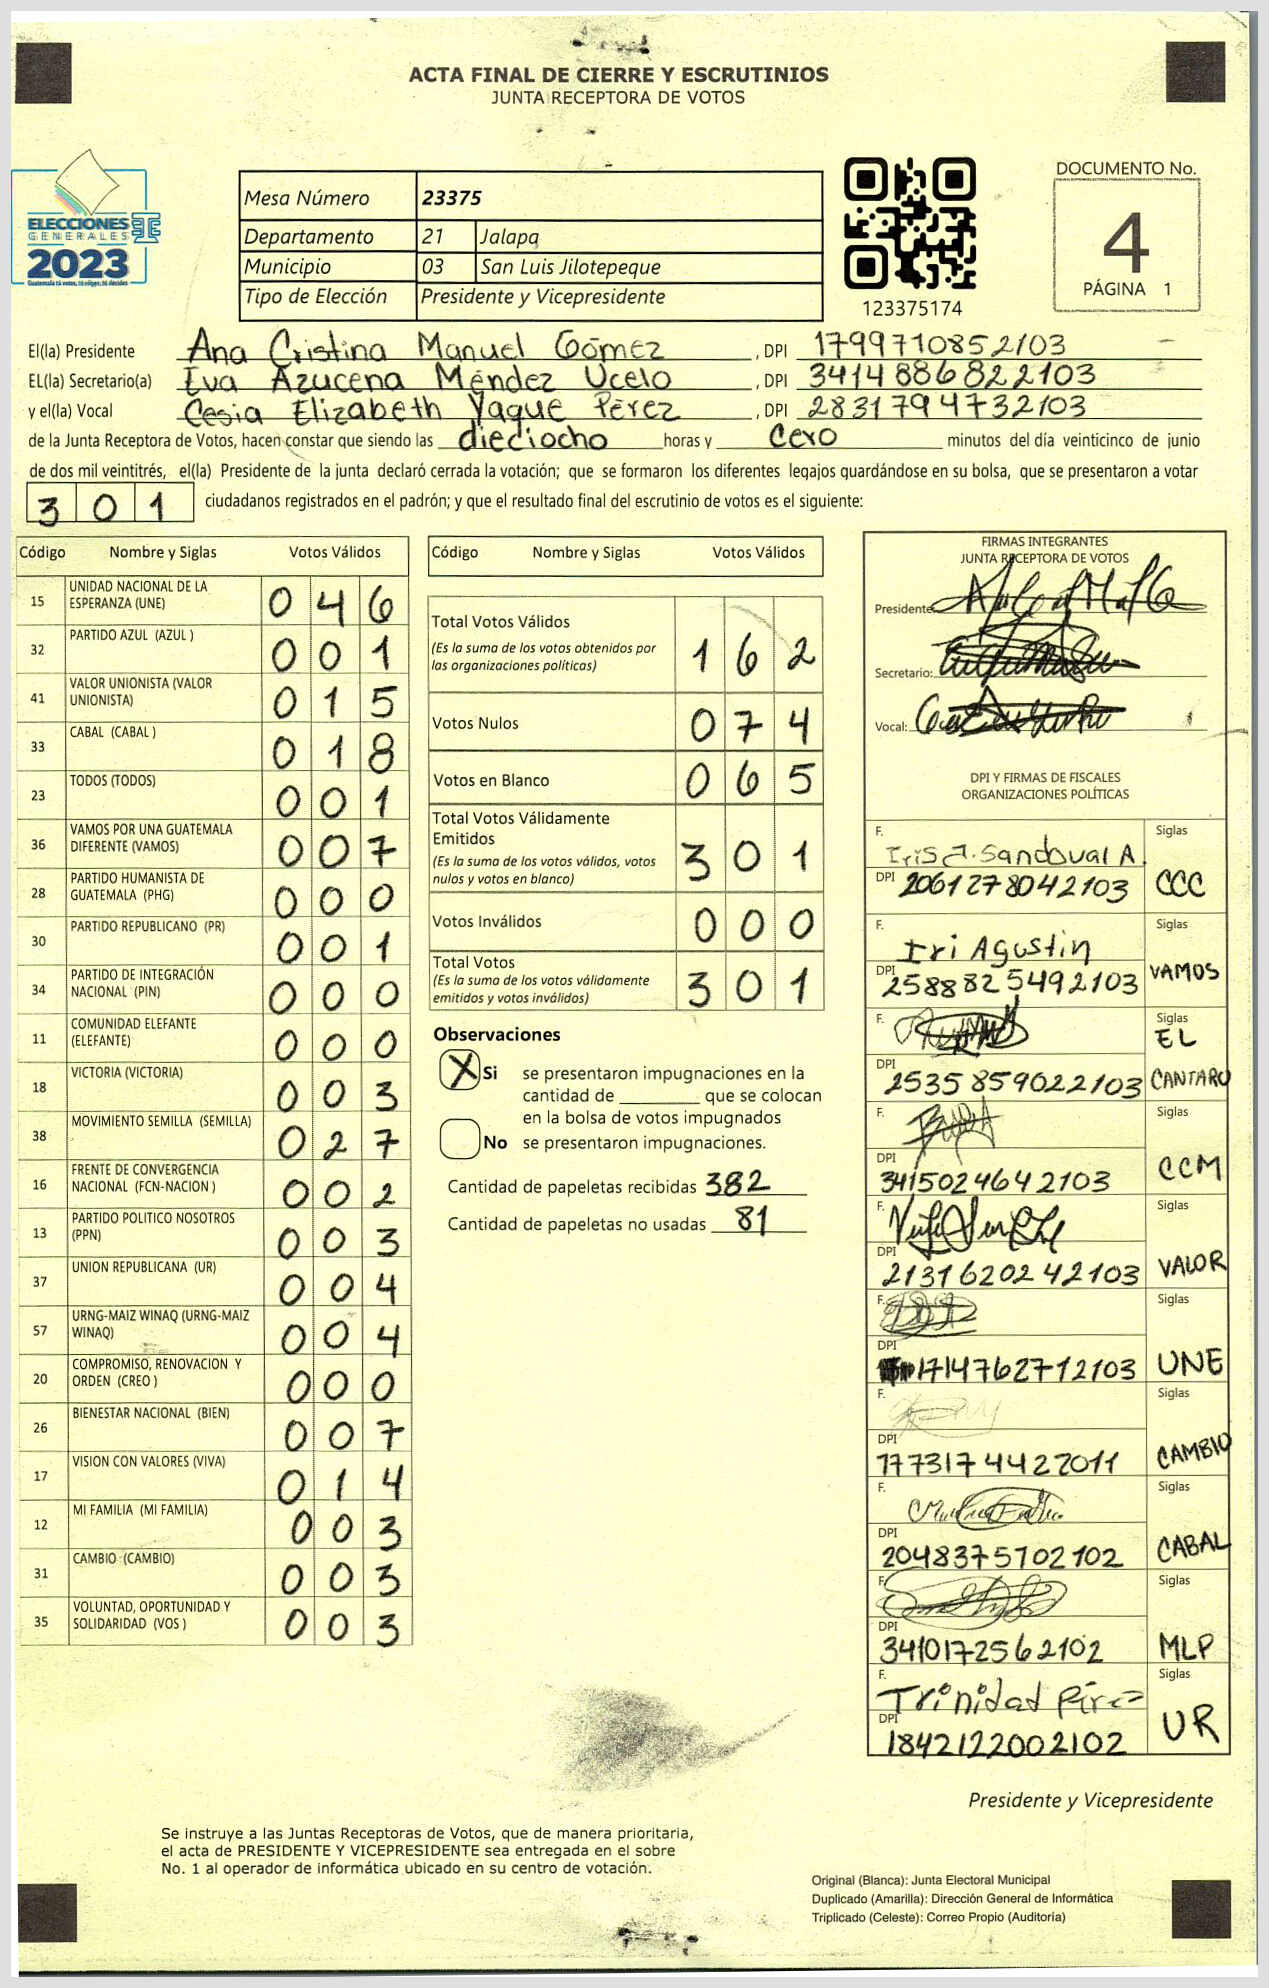 ACTA FINAL DE CIERRE Y ESCRUTINIOS
JUNTA RECEPTORA DE VOTOS
ELECCIONES
GENERALES
2023
Guatemala tú votas, tú eliges, tú decides
Mesa Número 23375
Departamento 21 Jalapa
Municipio 03 San Luis Jilotepeque
Tipo de Elección Presidente y Vicepresidente
123375174
DOCUMENTO No.
4
PÁGINA 1
El(la) Presidente Ana Cristina Manuel Gómez, DPI 1799710852103
EL(la) Secretario(a) Eva Azucena Méndez Ucelo, DPI 3414886822103
y el(la) Vocal Cesia Elizabeth Yaque Pérez, DPI 2831794732103
de la Junta Receptora de Votos, hacen constar que siendo las dieciocho horas y cero minutos del día veinticinco de junio
de dos mil veintitrés, el(la) Presidente de la junta declaró cerrada la votación; que se formaron los diferentes legajos guardándose en su bolsa, que se presentaron a votar
301 ciudadanos registrados en el padrón; y que el resultado final del escrutinio de votos es el siguiente:
Código Nombre y Siglas Votos Válidos
15 UNIDAD NACIONAL DE LA ESPERANZA (UNE) 046
32 PARTIDO AZUL (AZUL ) 001
41 VALOR UNIONISTA (VALOR UNIONISTA) 015
33 CABAL (CABAL ) 018
23 TODOS (TODOS) 001
36 VAMOS POR UNA GUATEMALA DIFERENTE (VAMOS) 007
28 PARTIDO HUMANISTA DE GUATEMALA (PHG) 000
30 PARTIDO REPUBLICANO (PR) 001
34 PARTIDO DE INTEGRACIÓN NACIONAL (PIN) 000
11 COMUNIDAD ELEFANTE (ELEFANTE) 000
18 VICTORIA (VICTORIA) 003
38 MOVIMIENTO SEMILLA (SEMILLA) 027
16 FRENTE DE CONVERGENCIA NACIONAL (FCN-NACION ) 002
13 PARTIDO POLITICO NOSOTROS (PPN) 003
37 UNION REPUBLICANA (UR) 004
57 URNG-MAIZ WINAQ (URNG-MAIZ WINAQ) 004
20 COMPROMISO, RENOVACION Y ORDEN (CREO ) 000
26 BIENESTAR NACIONAL (BIEN) 007
17 VISION CON VALORES (VIVA) 014
12 MI FAMILIA (MI FAMILIA) 003
31 CAMBIO (CAMBIO) 003
35 VOLUNTAD, OPORTUNIDAD Y SOLIDARIDAD (VOS ) 003
Código Nombre y Siglas Votos Válidos
Total Votos Válidos 162
(Es la suma de los votos obtenidos por
las organizaciones políticas)
Votos Nulos 074
Votos en Blanco 065
Total Votos Válidamente
Emitidos 301
(Es la suma de los votos válidos, votos
nulos y votos en blanco)
Votos Inválidos 000
Total Votos 301
(Es la suma de los votos válidamente
emitidos y votos inválidos)
Observaciones
X Si se presentaron impugnaciones en la
cantidad de ________ que se colocan
en la bolsa de votos impugnados
No se presentaron impugnaciones.
Cantidad de papeletas recibidas 382
Cantidad de papeletas no usadas 81
FIRMAS INTEGRANTES
JUNTA RECEPTORA DE VOTOS
Presidente:
Secretario:
Vocal:
DPI Y FIRMAS DE FISCALES
ORGANIZACIONES POLÍTICAS
F. Iris J. Sandoval A. Siglas
DPI 2061278042103 CCC
F. Iri Agustin Siglas
DPI 2588825492103 VAMOS
F. Siglas
DPI 2535859022103 EL CANTARO
F. Siglas
DPI 3415024642103 CCM
F. Siglas
DPI 2131620242103 VALOR
F. Siglas
DPI 1714762712103 UNE
F. Siglas
DPI 1773174422011 CAMBIO
F. Siglas
DPI 2048375702102 CABAL
F. Siglas
DPI 3410172562102 MLP
F. Trinidad Siglas
DPI 1842122002102 UR
Presidente y Vicepresidente
Se instruye a las Juntas Receptoras de Votos, que de manera prioritaria,
el acta de PRESIDENTE Y VICEPRESIDENTE sea entregada en el sobre
No. 1 al operador de informática ubicado en su centro de votación.
Original (Blanca): Junta Electoral Municipal
Duplicado (Amarilla): Dirección General de Informática
Triplicado (Celeste): Correo Propio (Auditoría)